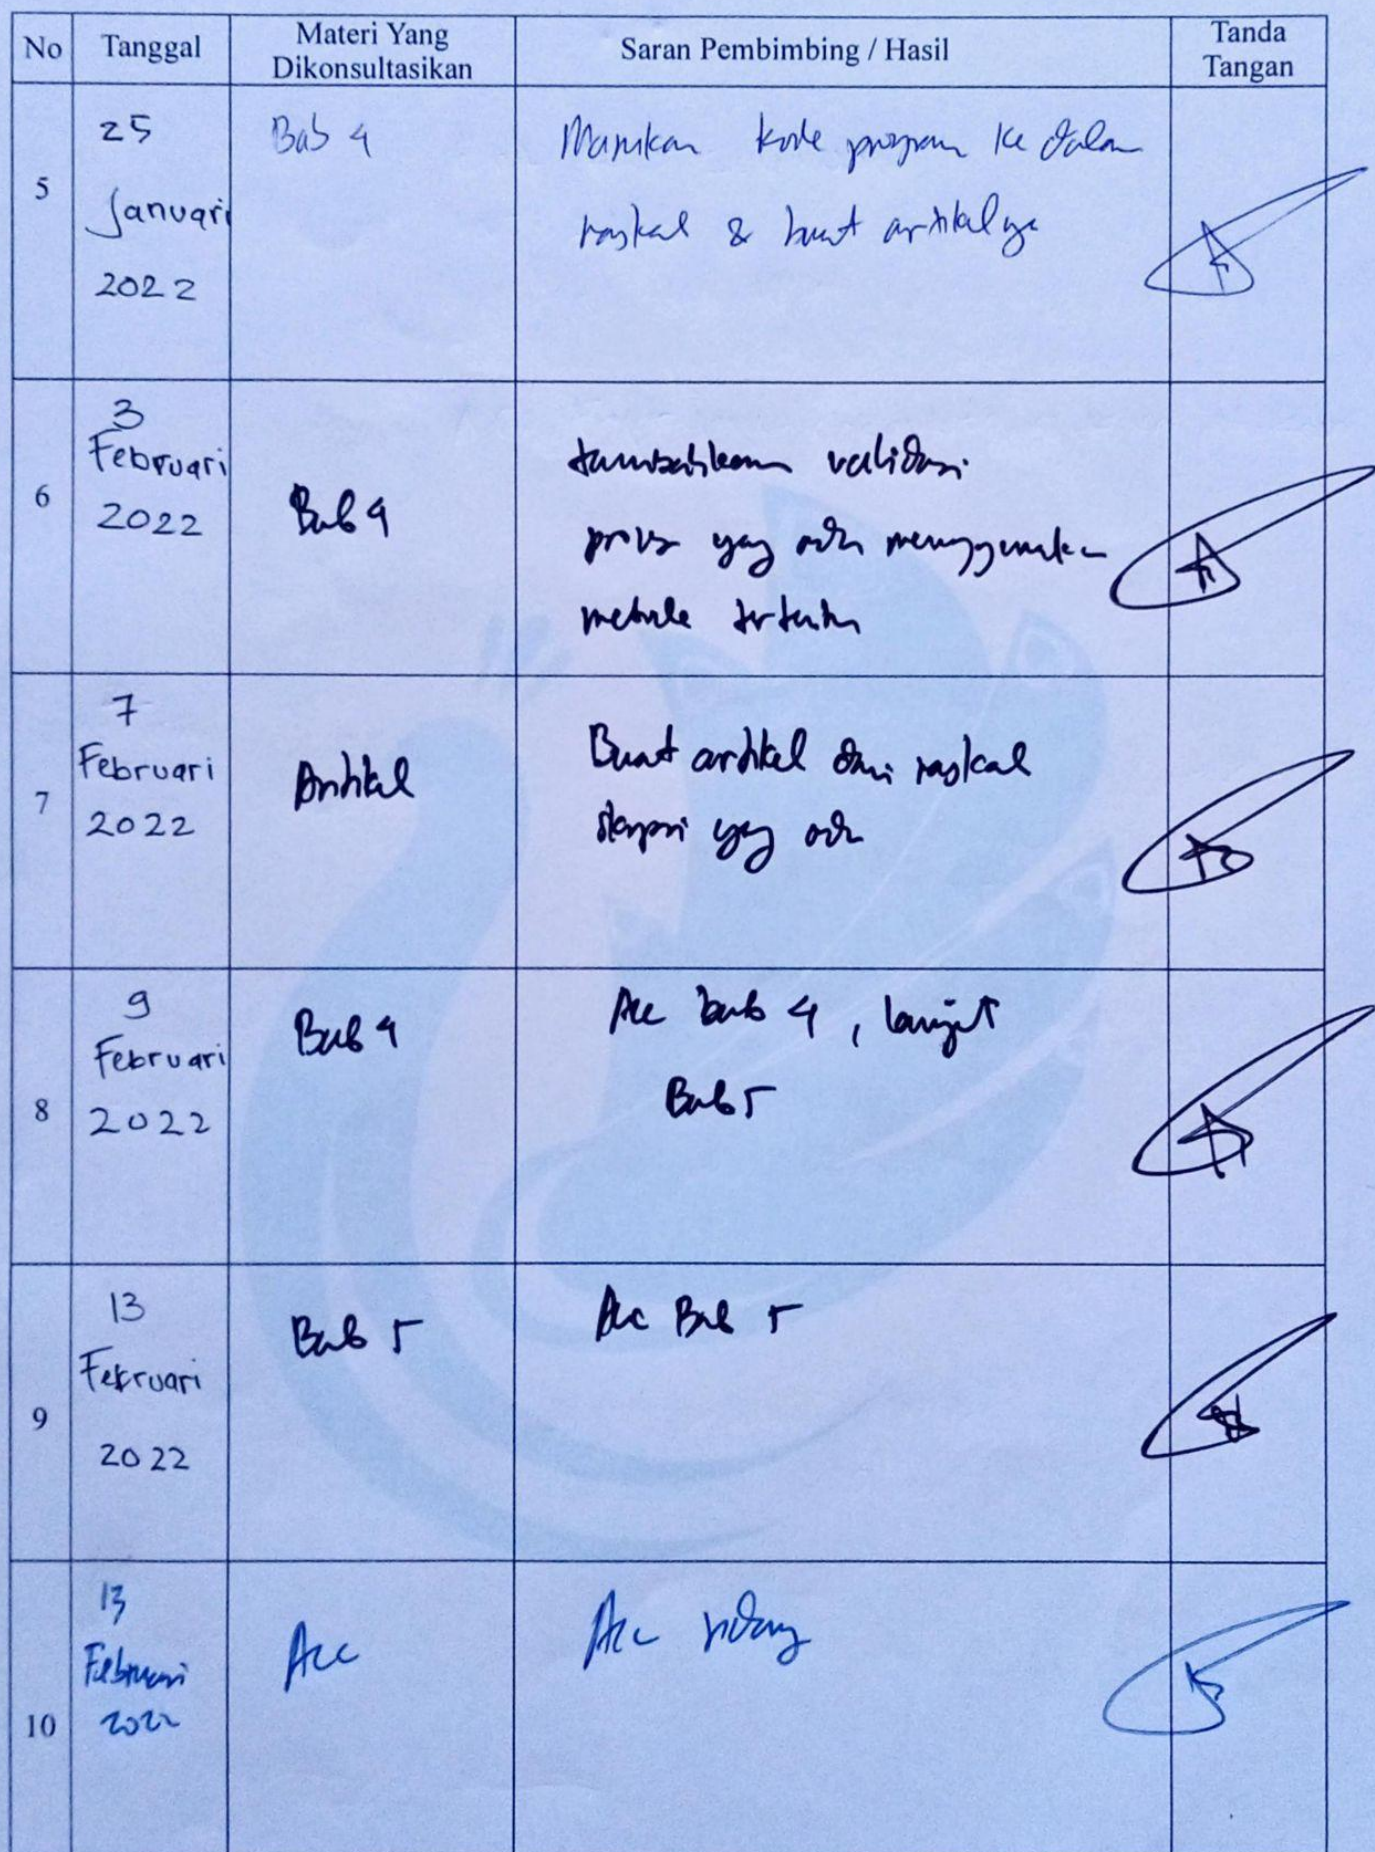 No Tanggal Materi Yang Dikonsultasikan Saran Pembimbing / Hasil Tanda Tangan
5
25
Januari
2022
Bab 4
Masukan kode program ke dalam
naskah & buat artikelnya
6
3
Februari
2022
Bab 4
tambahkan validasi
yang ada menggunakan
metode tertentu
7
7
Februari
2022
Artikel
Buat artikel dari naskah
skripsi yang ada
8
9
Februari
2022
Bab 4
Acc bab 4, lanjut
Bab 5
9
13
Februari
2022
Bab 5
Acc Bab 5
10
13
Februari
2022
Acc
Acc sidang